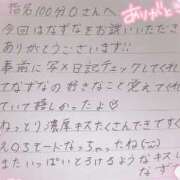 指名100分Oさんへ
ありがとう
今回はなずなをお誘いいただき
ありがとうございます!!
事前に写×日記チェックしてくれて
なずなの好きなこと覚えてくれて
いて嬉しかったよ
ねっとり濃厚キスたくさんできてすぐ
えOちモードなっちゃったね(〃)
またいっぱいとろけるようなキスし
なず